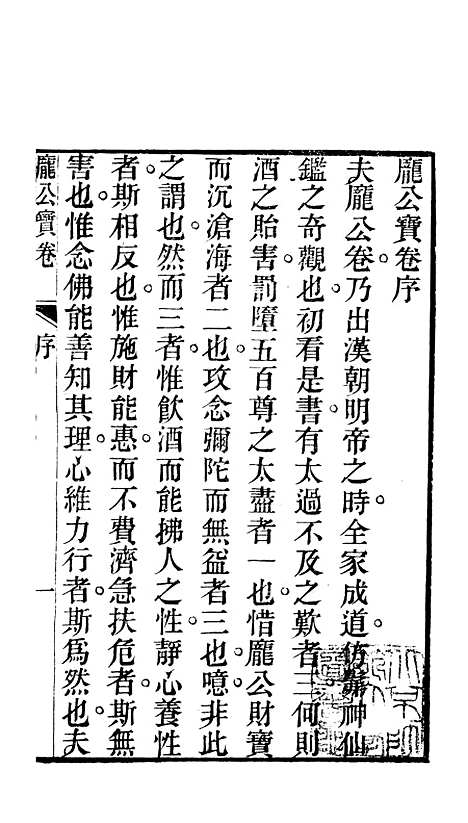 龐公寶卷序
夫龐公卷。乃出漢朝明帝之時。全家成道。仿髴神仙
鑑之奇觀也。初看是書。有太過不及之歎者三。何則
酒之貽害。罰墮五百尊之太盡者一也。惜龐公財寶
而沉滄海者二也。攻念彌陀而無益者三也。噫。非此
之謂也。然而三者。惟飲酒而能拂人之性。靜心養性
者。斯相反也。惟施財能惠。而不費濟急扶危者。斯無
害也。惟念佛能善知其理。心維力行者。斯爲然也。夫
龐公寶卷
序
一